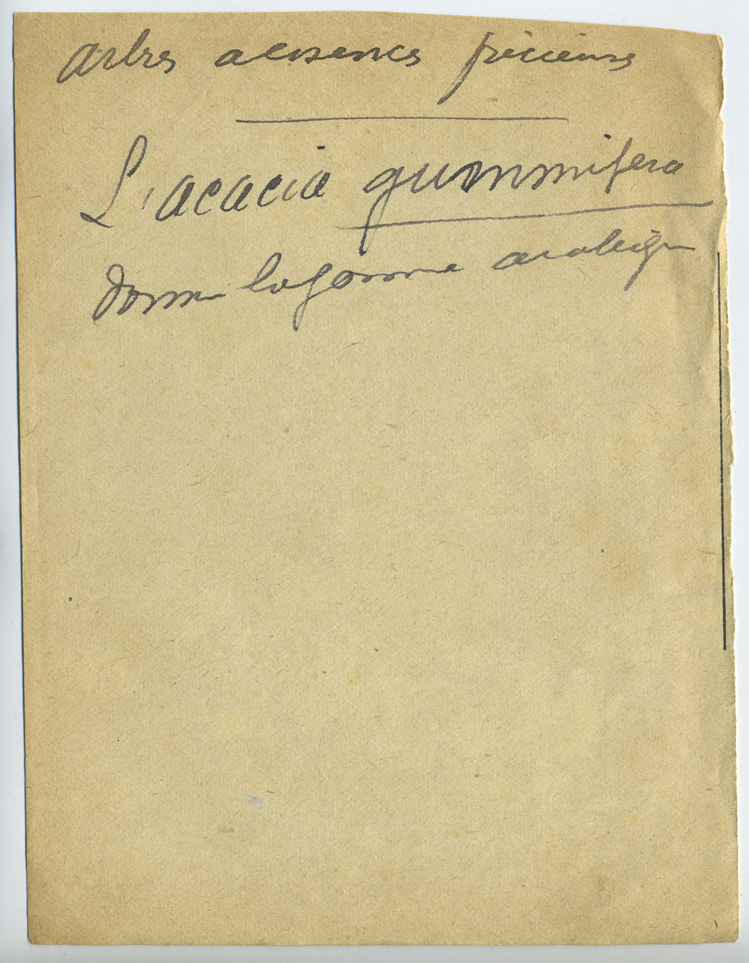 arbres a essences précieuses
L'acacia gummifera
donne la gomme arabique